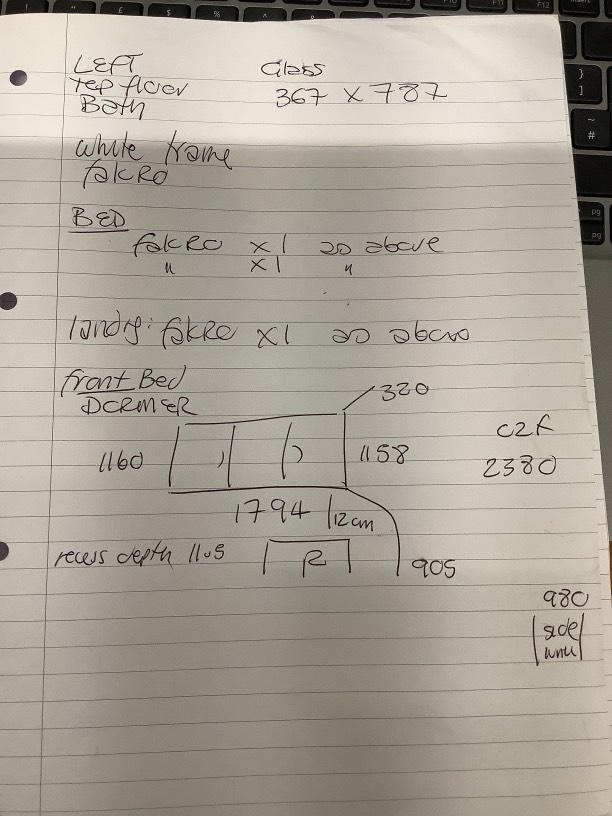 LEFT
top floor
Bath
Glass
367 x 787
white frame
fakRO
BED
fakRO x 1 as above
" x 1 "
landg: fakRO x 1 as above
front Bed
DORMER
320
1160
1158
1794
12cm
905
C2F
2380
recess depth 11.5
R
980
side